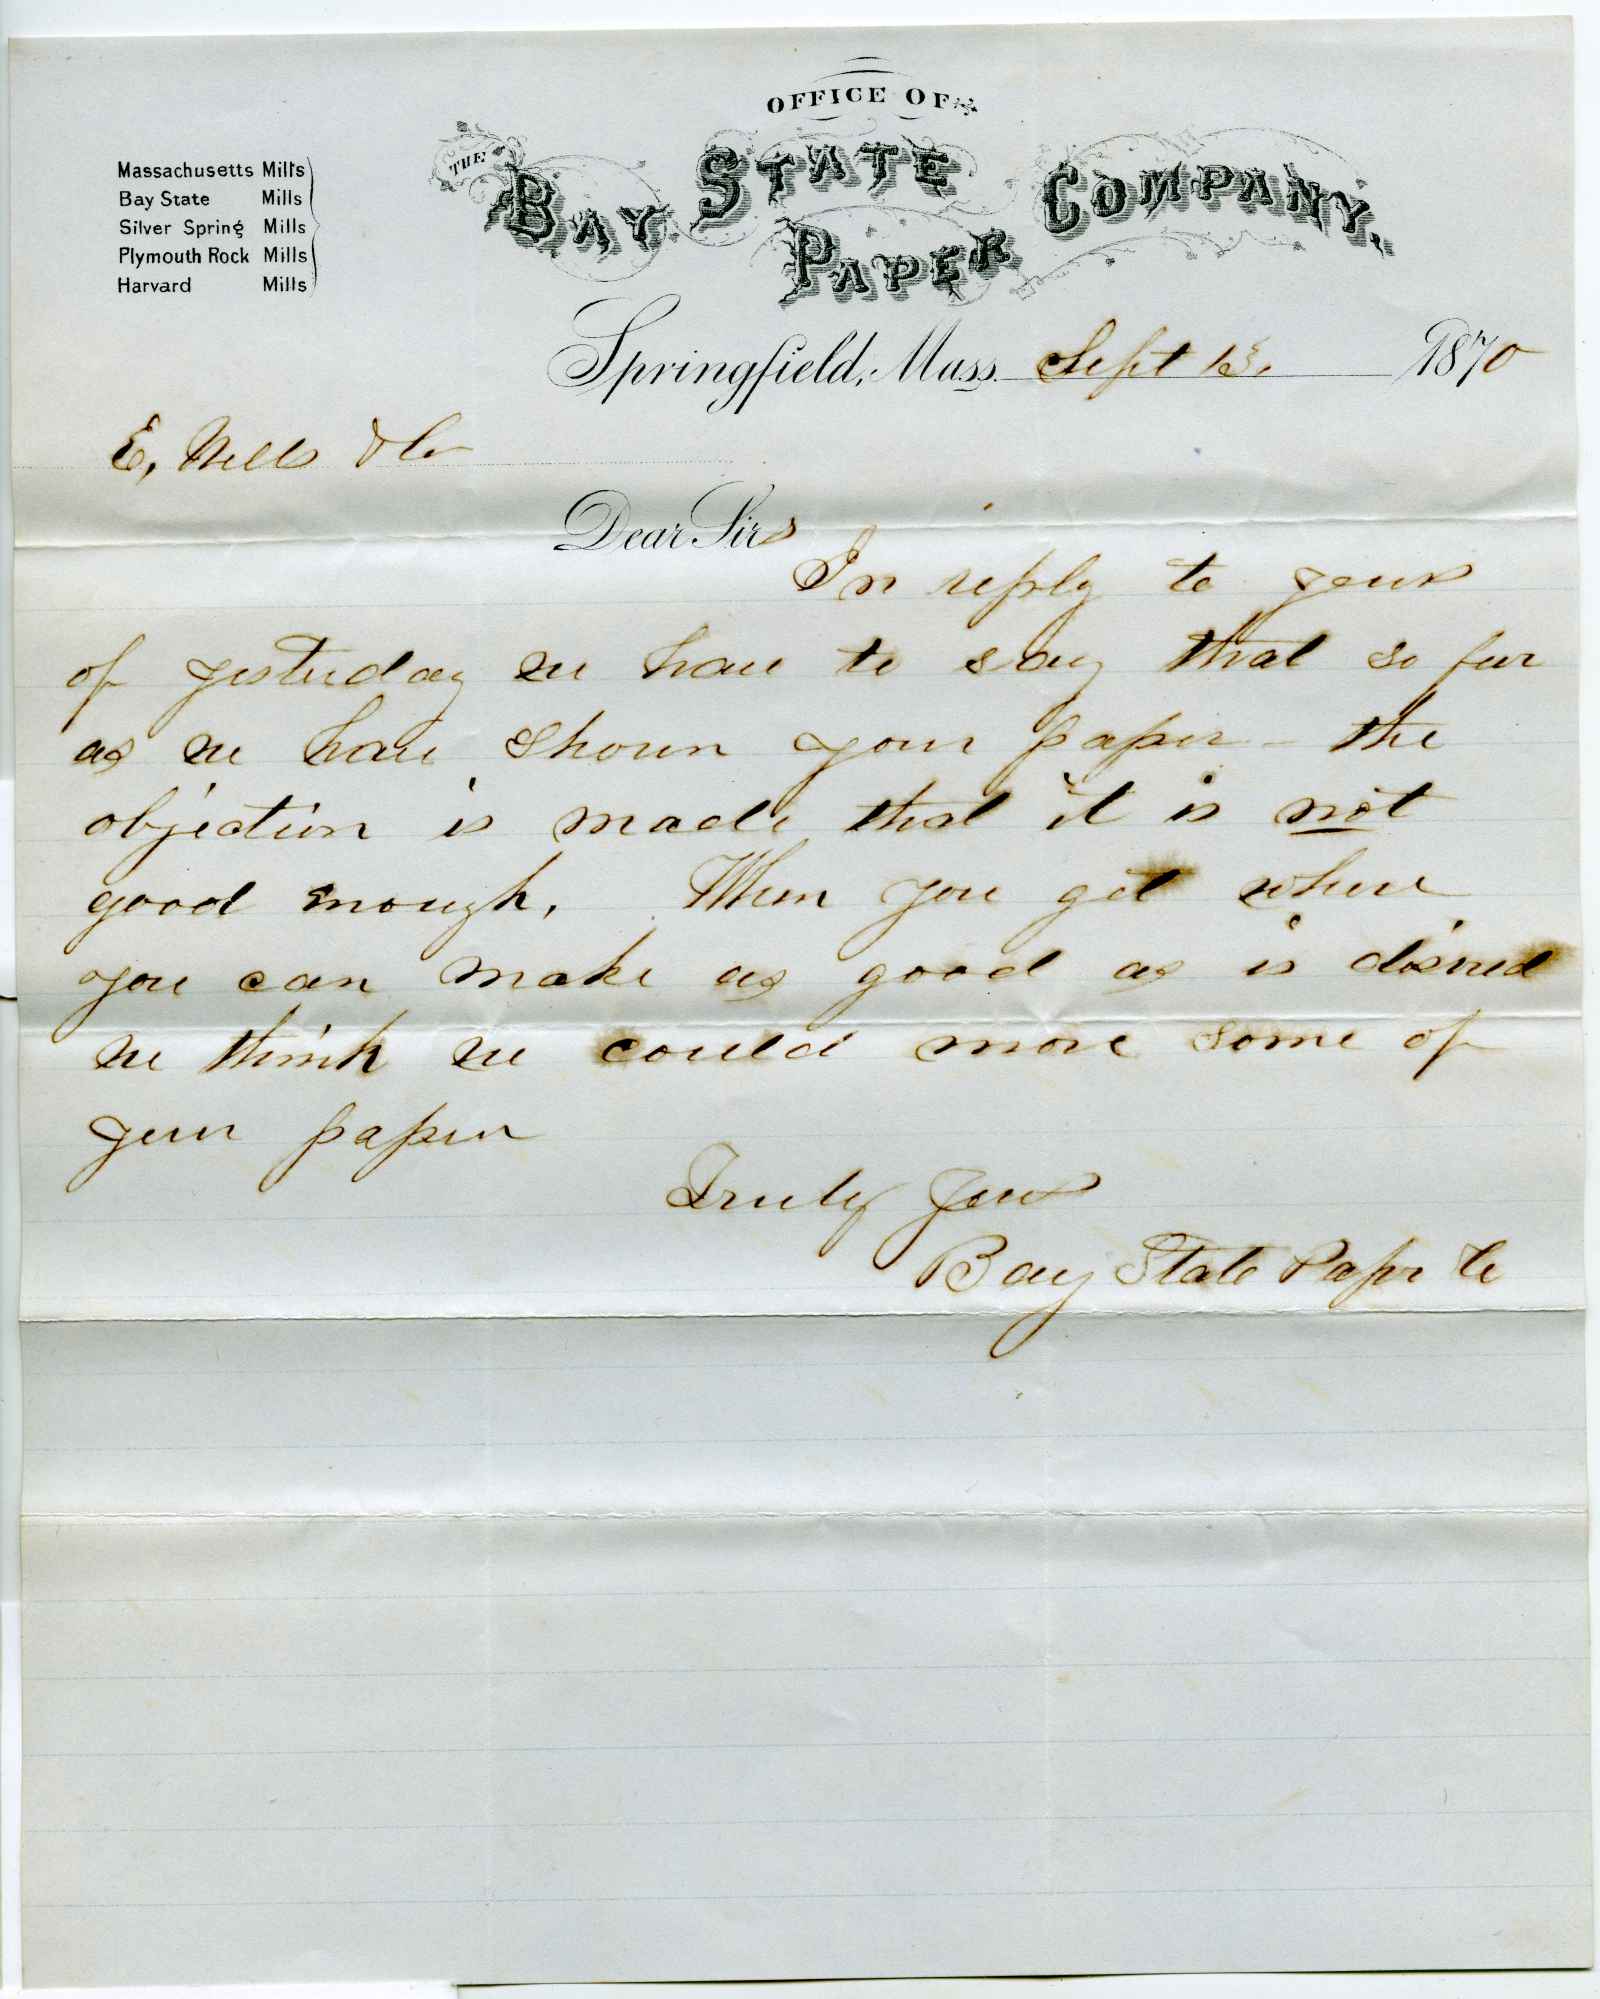 OFFICE OF
THE BAY STATE PAPER COMPANY.
Massachusetts Mills
Bay State Mills
Silver Spring Mills
Plymouth Rock Mills
Harvard Mills
Springfield, Mass. Sept 13, 1870
E. Wells & Co
Dear Sirs
In reply to yours
of yesterday we have to say that so far
as we have shown your paper - the
objection is made that it is not
good enough. When you get where
you can make as good as is desired
we think we could move some of
your paper
Truly Yours
Bay State Paper Co